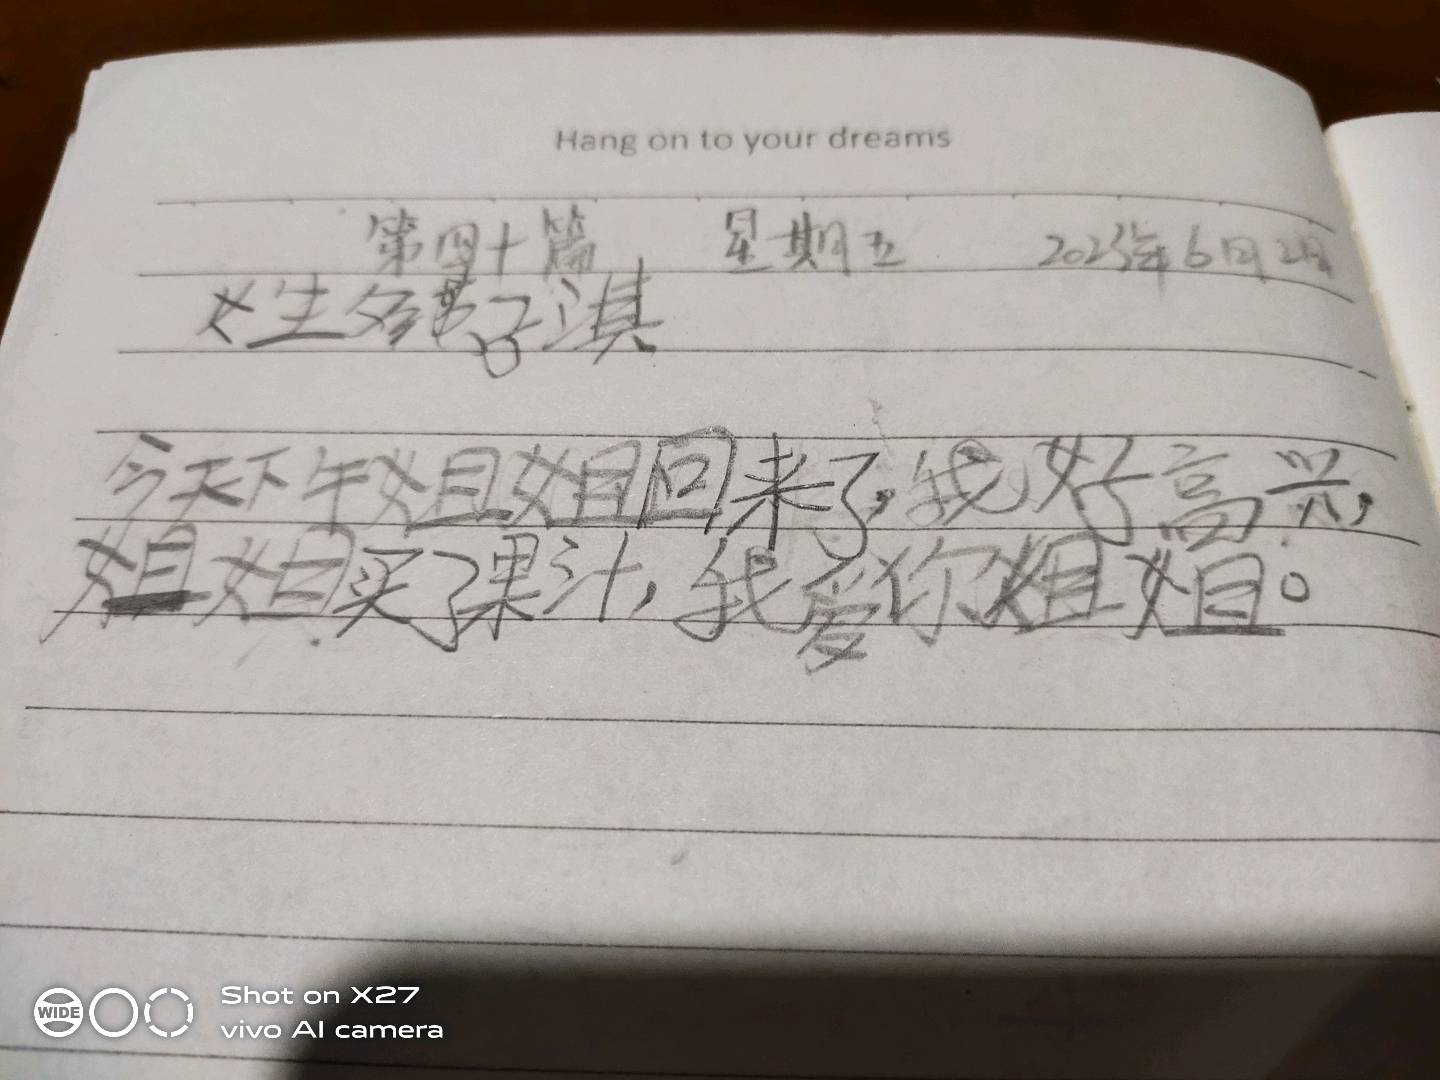 Hang on to your dreams
第四十篇 星期五 2023年6月2日
女生 子淇
今天下午姐姐回来了,我好高兴,
姐姐买了果汁,我爱你姐姐。
WIDE
Shot on X27
vivo AI camera